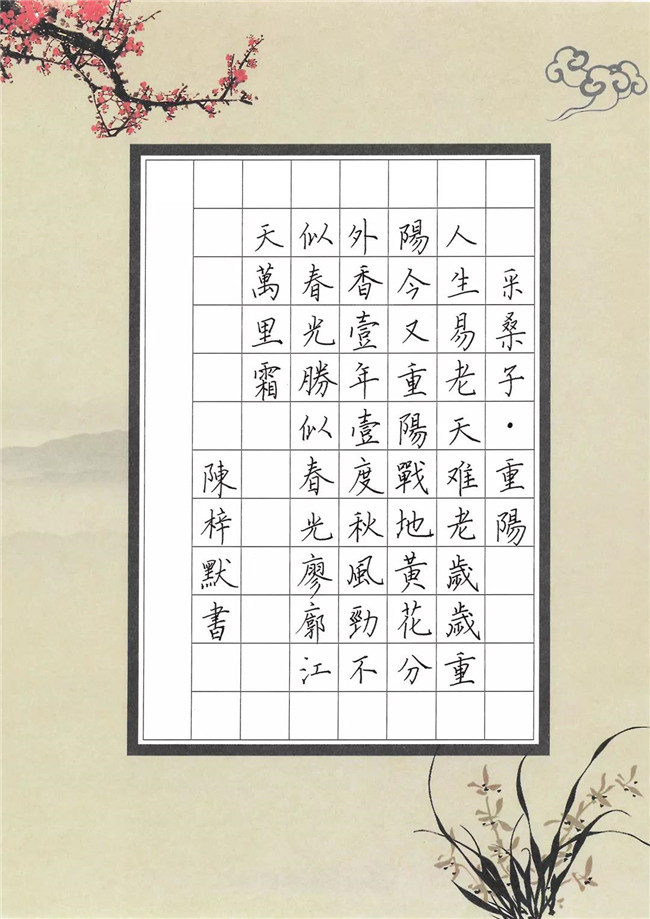 采桑子·重陽
人生易老天难老歲歲重
陽今又重陽戰地黃花分
外香壹年壹度秋風勁不
似春光勝似春光廖廓江
天萬里霜
陳梓默書